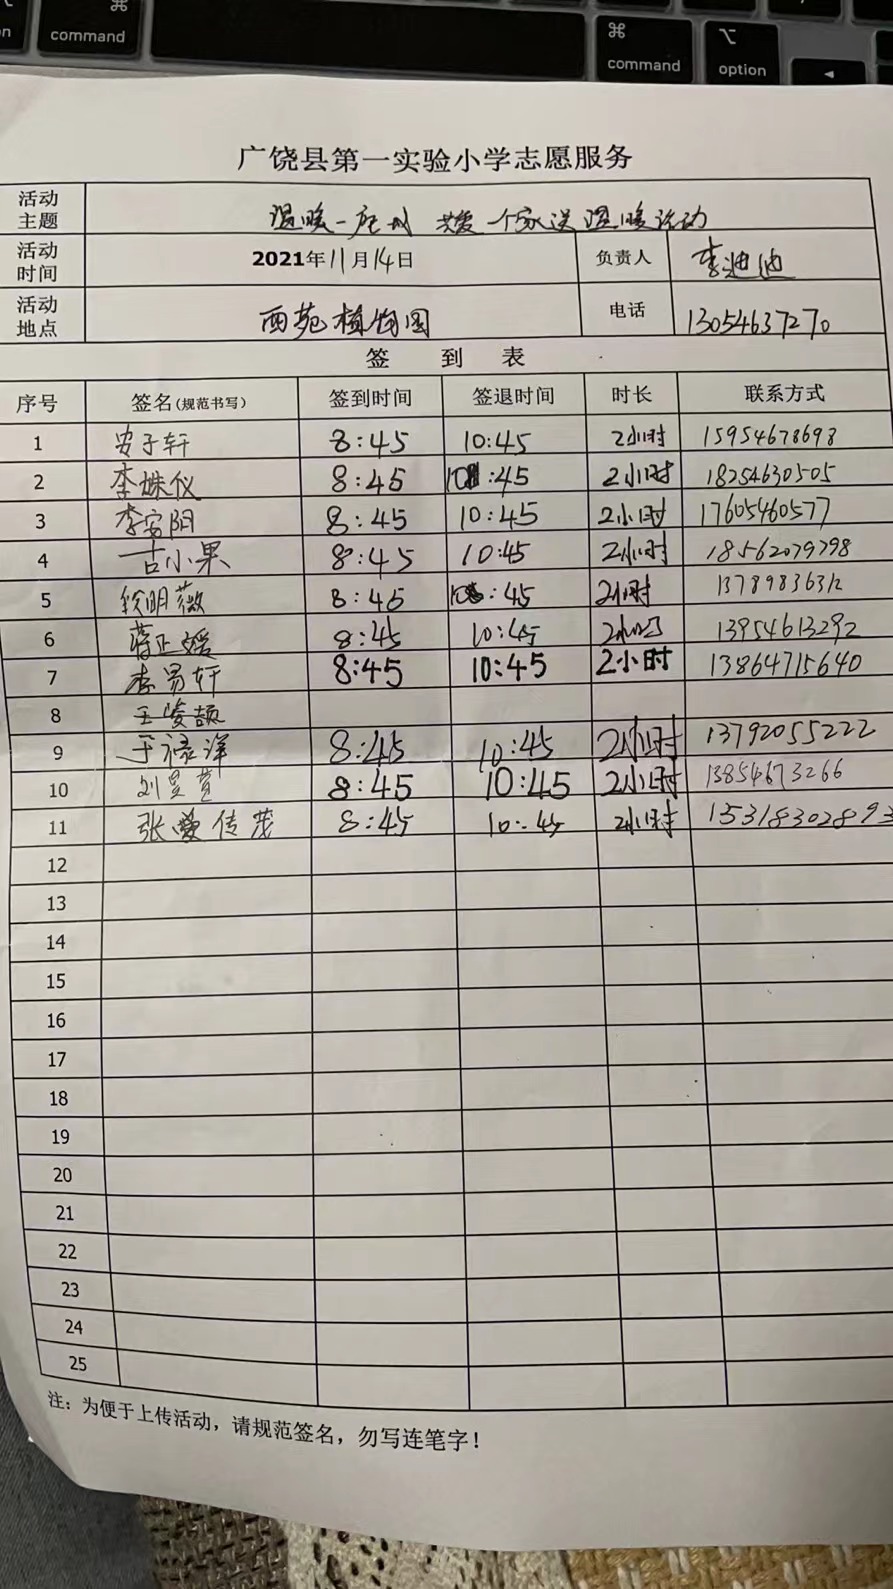 command
⌘
command
⌥
option
广饶县第一实验小学志愿服务
活动主题 温暖一座城 共爱一个家送温暖活动
活动时间 2021年11月14日 负责人 李迪迪
活动地点 西苑植物园 电话 13054637270
签 到 表
序号 签名(规范书写) 签到时间 签退时间 时长 联系方式
1 安子轩 8:45 10:45 2小时 15954678698
2 李姝仪 8:45 10:45 2小时 18254630505
3 李安阳 8:45 10:45 2小时 17605460577
4 古小果 8:45 10:45 2小时 18562079798
5 段明薇 8:45 10:45 2小时 13789836312
6 蒋正媛 8:45 10:45 2小时 13954613292
7 李易轩 8:45 10:45 2小时 13864715640
8 王峻颉
9 于禄洋 8:45 10:45 2小时 13792055222
10 刘昱萱 8:45 10:45 2小时 13854673266
11 张传茂 8:45 10:45 2小时 15318302893
12
13
14
15
16
17
18
19
20
21
22
23
24
25
注：为便于上传活动，请规范签名，勿写连笔字！